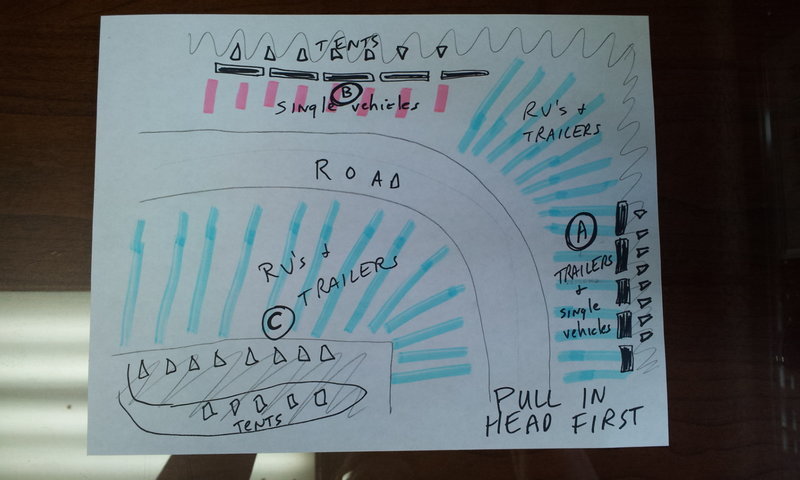 TENTS
B
single vehicles
RV's &
TRAILERS
ROAD
A
TRAILERS
&
single
vehicles
RV's &
TRAILERS
C
TENTS
PULL IN
HEAD FIRST